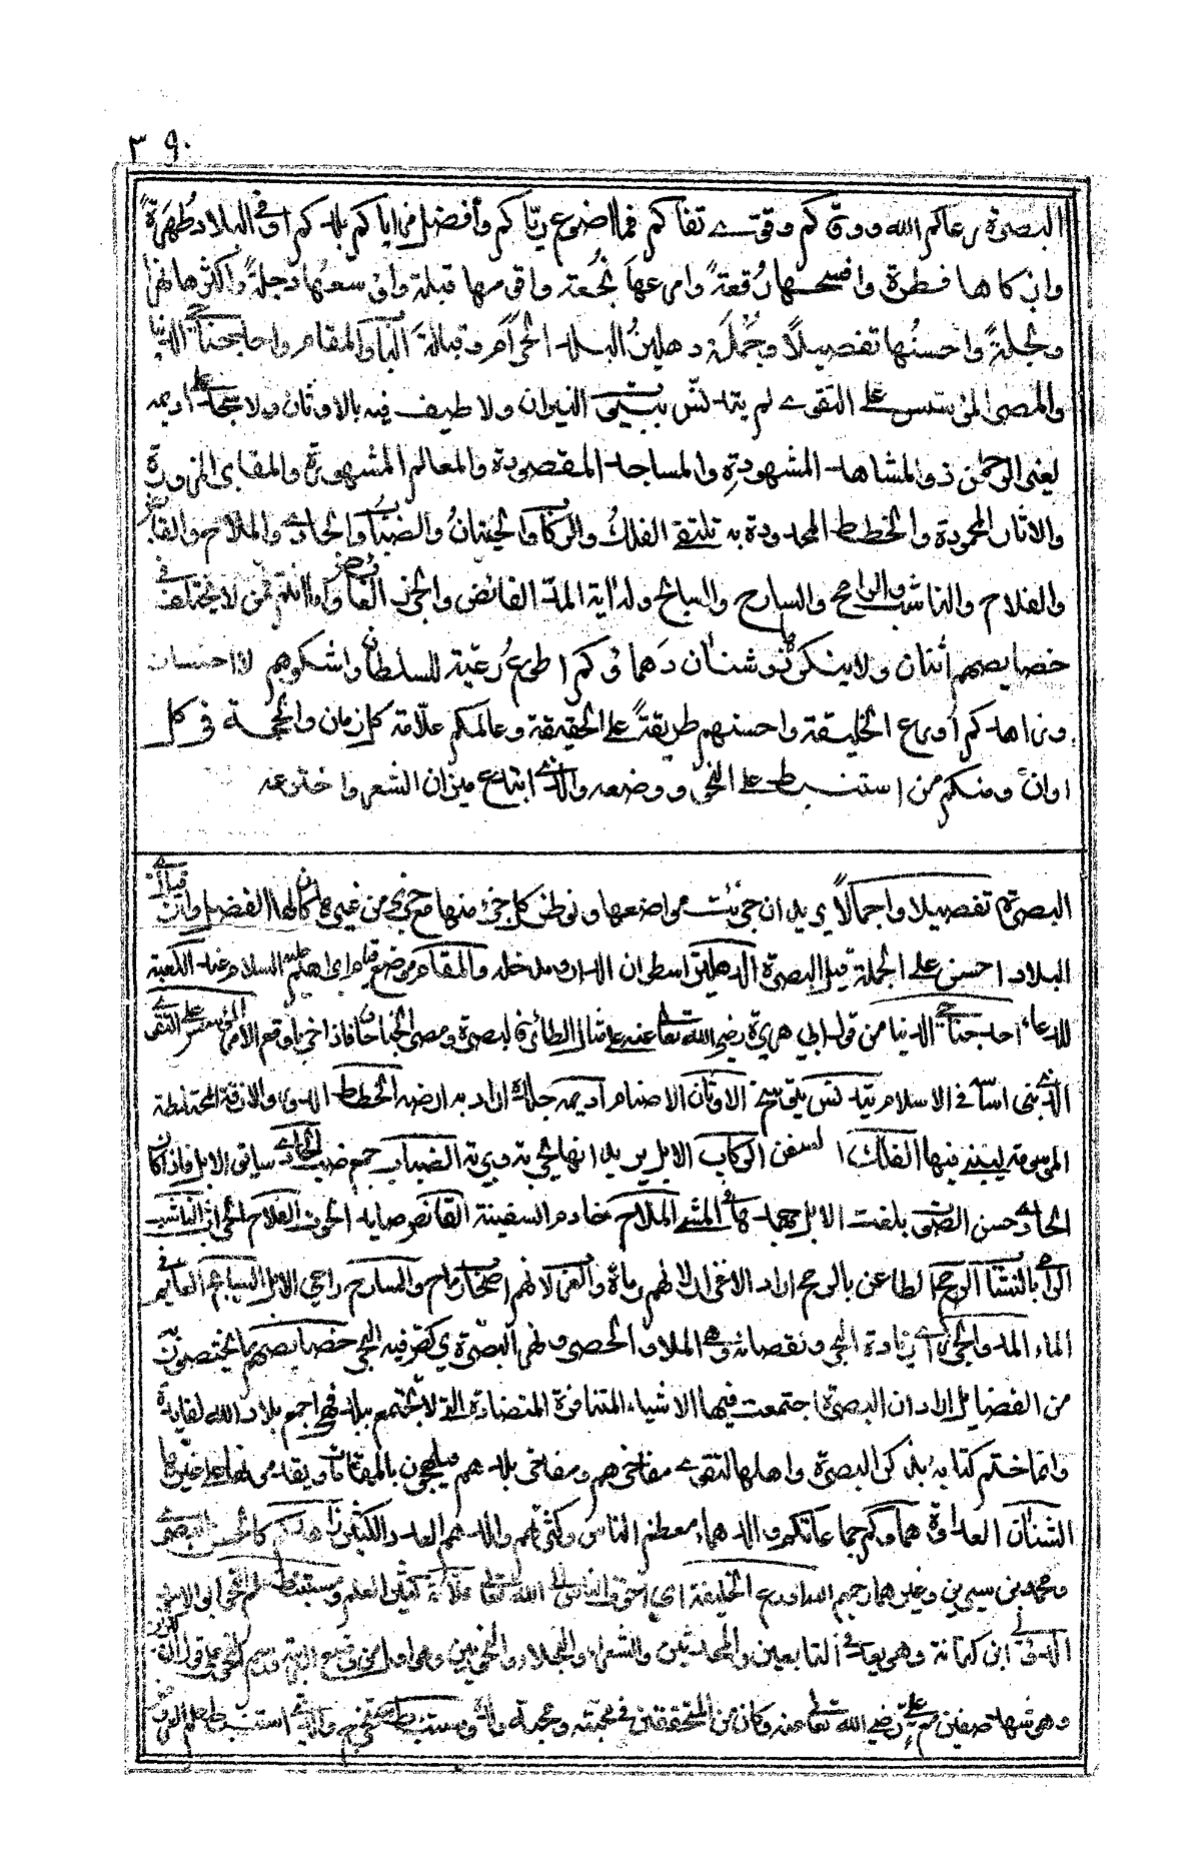 ٣٩٠
البصرة رعاكم الله ووقاكم وقوى تقاكم فما اضوع رياكم وأفضل مزاياكم بلدكم اوفى البلاد طُهرةً
وازكاها فطرة وافسحها رُقعةً وامرعها نُجعة واقومها قبلة واوسعها دجلةً واكثرها نهرا
ونخلةً واحسنُها تفصيلاً وجُملة دهليزُ البلد الحرام وقبالةَ الباب والمقام واحد جناحي الدنيا
والمصر المؤسس على التقوى لم يتدنس ببيوت النيران ولا طيف فيه بالاوثان ولا سجد على اديمه
لغير الرحمن ذو المشاهد المشهودةِ والمساجد المقصودة والمعالم المشهورة والمقابر المزورة
والاثار المحمودة والخطط المحدودة به تلتقي الفلكُ والركاب والحيتانُ والضباب والحادي والملاح والقانص
والفلاح والناشب والرامح والسارح والسابح وله اية المد الفائض والجزر الغائض واما انتم فمن لا يختلف في
خصايصهم اثنان ولا ينكرها ذو شنان دهماؤكم اطوع رعية للسلطان واشكرهم لاحسان
وزاهدكم اورع الخليقة واحسنهم طريقةً على الحقيقة وعالمكم علامة كل زمان والحجة في كل
اوان ومنكم من استنبط علم النحو ووضعه والذي ابتدع ميزان الشعر واخترعه
البصرة تفصيلا واجمالاً يريد ان جزئت مواضعها ونوظر كل جزء منها مع جزء من غيره كان لها الفضل وان قيل اي
البلاد احسن على الجملة قيل البصرة الدهليز اسطوان الدار ومدخله والمقام موضع قيام ابراهيم عليه السلام عند الكعبة
للدعاء احد جناحي الدنيا من قول ابي هريرة رضي الله تعالى عنه على مثال الطائر فالبصرة ومصر الجناحان فاذا خربا وقع الامر المؤسس على التقوى
الذي بنى اساسه في الاسلام يتدنس يتوسخ الاوثان الاصنام اديمه جلده اراد به ارضه الخطط الدور والازقة المختطة
الموسومة ليبنى فيها الفلك السفن الركاب الابل يريد انها بحرية وبرية الضباب جمع ضب الحادي سائق الابل فاذا كان
الحادي حسن الصوت بلغت الابل جهدها في المشي الملاح خادم السفينة القانص صايد الحوت الفلاح الحراث الناشب
الرامي بالنشاب الرامح الطاعن بالرمح اراد الاغزاز لانهم رماة والعرب لانهم اصحاب رماح والسارح راعي الابل السابح العايم في
الماء المد والجزر زيادة البحر ونقصانه
من الفضايل اراد ان البصرة اجتمعت فيها الاشياء المتنافرة المتضادة التي لا تجتمع ببلد فهي اجمع بلاد الله لفايدة
وانما ختم كتابه بذكر البصرة واهلها لتقوى مفاخرهم ومفاخر بلدهم
الشنان العداوة دهماؤكم جماعاتكم والدهماء معظم الناس وكثرتهم والدهم العدد الكثير زاهدكم كالحسن البصري
ومحمد بن سيرين وغيرهما رحمهم الله اورع الخليقة اي اخوف الناس لله تعالى علامة كثير العلم ومستنبط علم النحو ابي الاسود
الدؤلي ابن كنانة وهو يعد في التابعين والمحدثين والشعراء والبخلاء والنحويين وهو اول من
وهو شهد صفين مع علي رضي الله تعالى عنه وكان من المتحققين في محبته ومحبة ولده